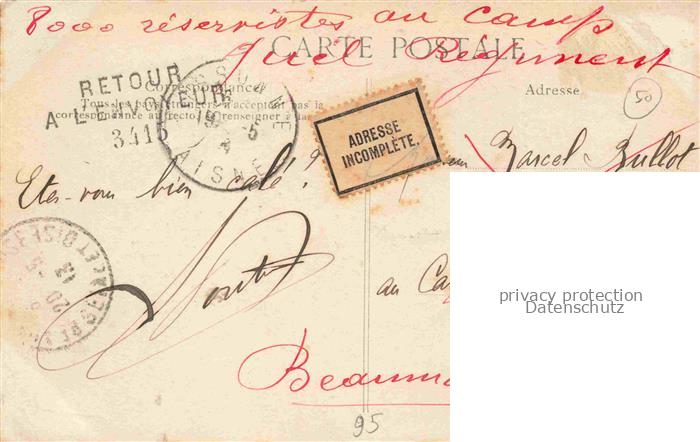 8000 réservistes au camp
CARTE POSTALE
Quel Régiment
RETOUR
A L'ENVOYEUR
3415
Correspondance
Tous les pays étrangers n'acceptent pas la
correspondance au recto (se renseigner à la
Adresse
50
SUZANNE
AISNE
19 5
ADRESSE
INCOMPLÈTE.
Marcel Bullot
Etes-vous bien calé ?
ET OISE
13
20
au Ca
privacy protection
Datenschutz
Beaum
95